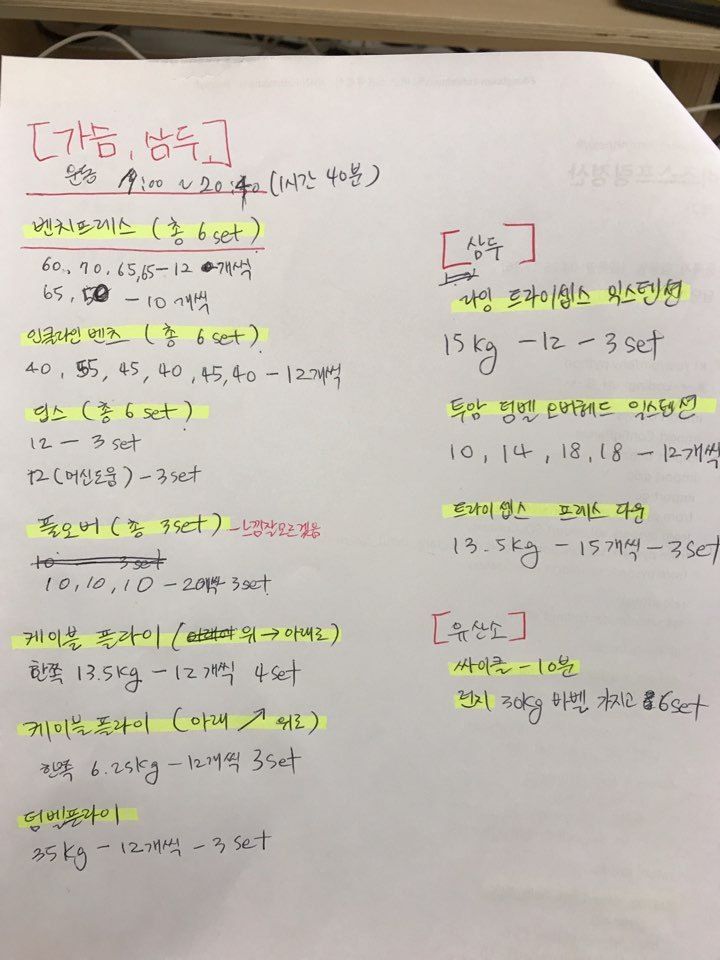 [가슴, 삼두]
운동 19:00 ~ 20:40 (1시간 40분)
벤치프레스 (총 6set)
60, 70, 65, 65 - 12 개씩
65, 50 - 10 개씩
인클라인 벤츠 (총 6set)
40, 55, 45, 40, 45, 40 - 12개씩
딥스 (총 6 set)
12 - 3 set
12 (머신도움) - 3set
플오버 (총 3set) - 느낌잘모르겠음
10 3set
10, 10, 10 - 20개씩 3set
케이블 플라이 (위 → 아래로)
한쪽 13.5kg - 12개씩 4set
케이블플라이 (아래 ↗ 위로)
한쪽 6.25kg - 12개씩 3set
덤벨플라이
35kg - 12개씩 - 3 set
[삼두]
라잉 트라이셉스 익스텐션
15kg - 12 - 3set
투암 덤벨 오버헤드 익스텐션
10, 14, 18, 18 - 12개씩
트라이셉스 프레스 다운
13.5kg - 15개씩 - 3set
[유산소]
싸이클 - 10분
런지 30kg 바벨 가지고 6set